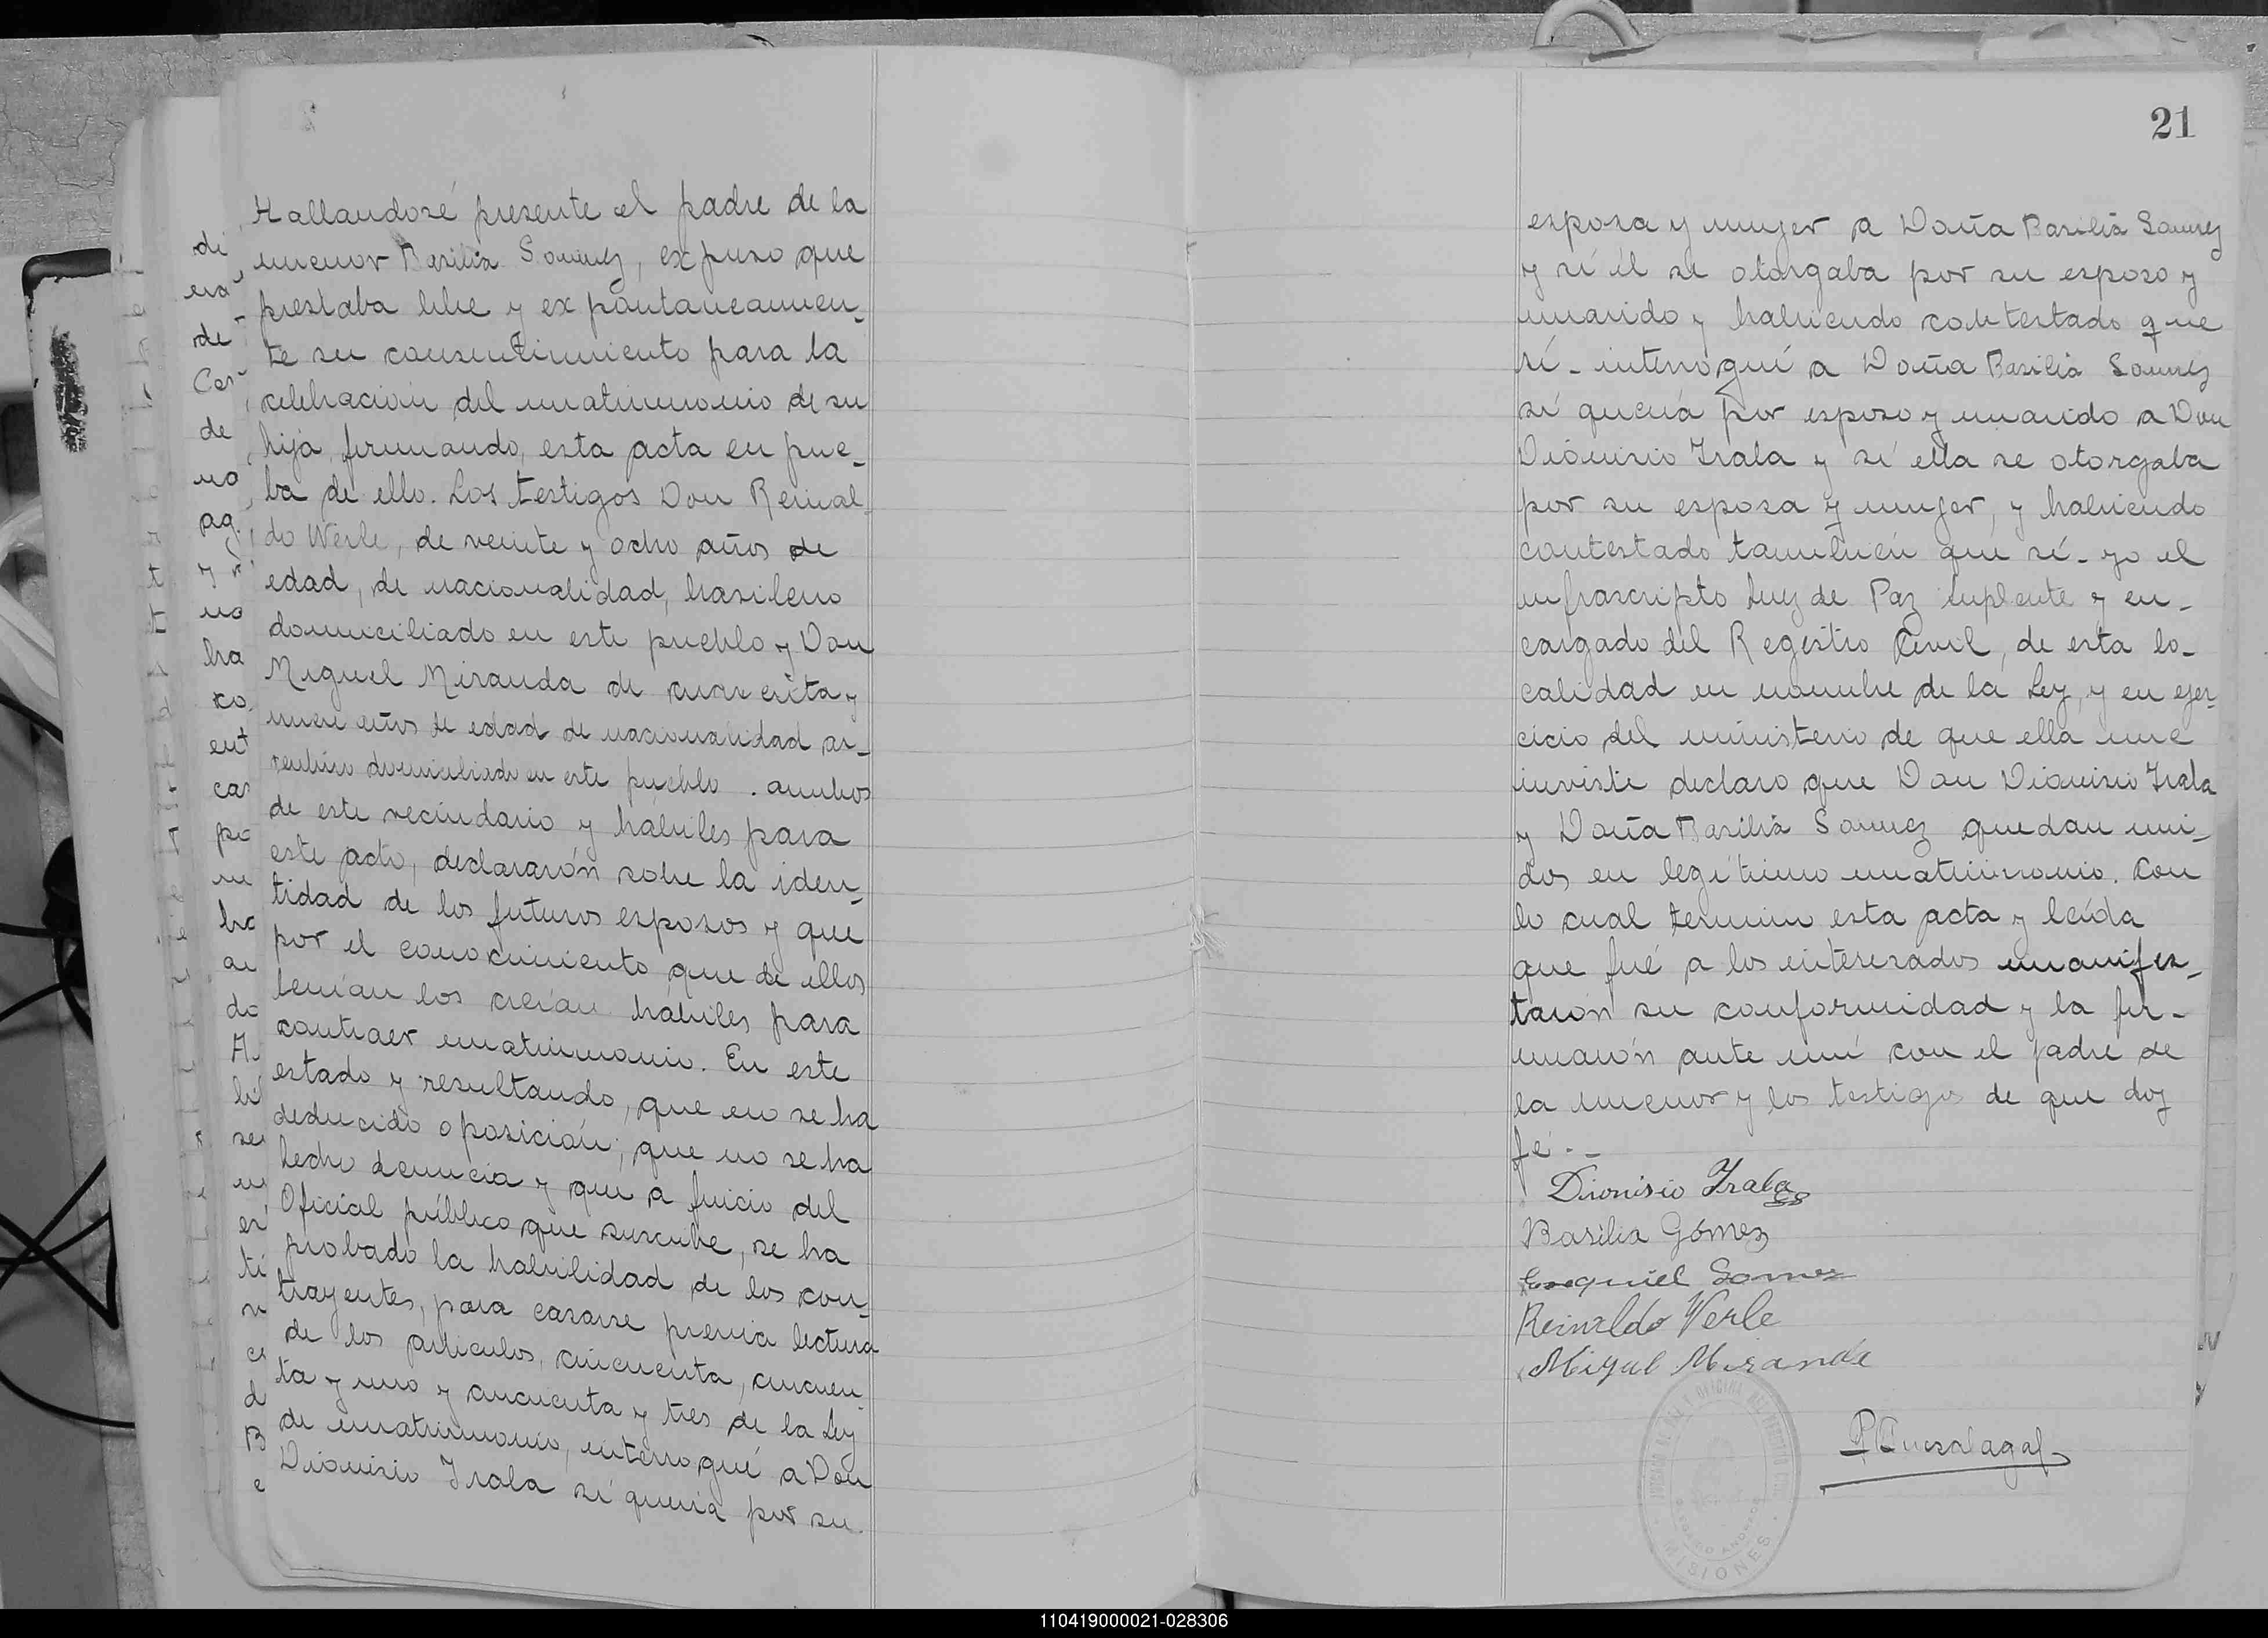 Hallandosé presente el padre de la
menor Basilia Gomez, expuso que
prestaba libre y expontaneamen-
te su consentimiento para la
celebración del matrimonio de su
hija, firmando, esta acta en prue-
ba de ello. Los testigos Don Reinal-
do Werle, de veinte y ocho años de
edad, de nacionalidad, brasileno
domiciliado en este pueblo y Don
Miguel Miranda de cuarenta y
nueve años de edad de nacionalidad ar-
gentino domiciliado en este pueblo. ambos
de este vecindario y hábiles para
este acto, declararón sobre la iden-
tidad de los futuros esposos y que
por el conocimiento que de ellos
tenían los creían hábiles para
contraer matrimonio. En este
estado y resultando, que no se ha
deducido oposición; que no se ha
hecho denuncia y que a juicio del
Oficial público que suscribe, se ha
probado la habilidad de los con-
trayentes, para casarse previa lectura
de los articulos, cincuenta, cincuen-
ta y uno y cincuenta y tres de la Ley
de matrimonio, interrogué a Don
Dionisio Irala si queria por su
21
esposa y mujer a Doña Basilia Gomez
y si él se otorgaba por su esposo y
marido y habiendo contestado que
sí - interrogué a Doña Basilia Gomez
si quería por esposo y marido a Don
Diónisio Irala y si ella se otorgaba
por su esposa y mujer, y habiendo
contestado también que sí - yo el
infrascripto Juez de Paz suplente y en-
cargado del Registro Civil, de esta lo-
calidad en nombre de la Ley, y en ejer-
cicio del ministerio de que ella me
inviste declaro que Don Dionisio Irala
y Doña Basilia Gomez quedan uni-
dos en legítimo matrimonio. Con
lo cual termino esta acta y leída
que fué a los interesados manifes-
tarón su conformidad y la fir-
marón ante mí con el padre de
la menor y los testigos de que doy
fé.-
Dionisio Irala
Basilia Gómez
Ezequiel Gomez
Reinaldo Werle
Migul Miranda
MISIONES
110419000021-028306